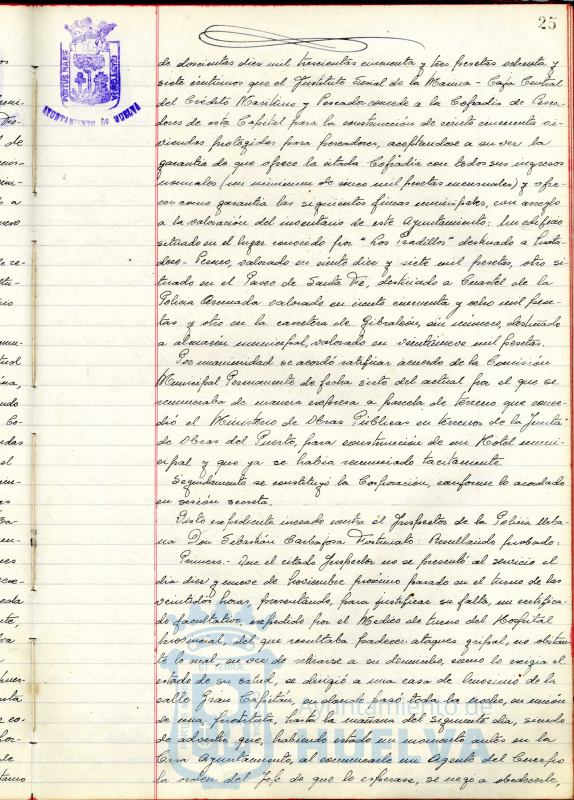 25
PORTUS MARIS
AYUNTAMIENTO DE HUELVA
de doscientas diez mil trescientas cincuenta y tres pesetas ochenta y
siete céntimos que el Instituto Social de la Marina - Caja Central
del Crédito Marítimo y Pescador concede a la Cofradía de Pesca-
dores de esta Capital para la construcción de ciento cincuenta vi-
viendas protegidas para pescadores, aceptándose a su vez la
garantía de que ofrece la citada Cofradía con todos sus ingresos
normales (un minimum de cinco mil pesetas mensuales) y ofre-
cer como garantía las siguientes fincas municipales, con arreglo
a la valoración del inventario de este Ayuntamiento: Un edificio
situado en el lugar conocido por "Los Pradillos" destinado a Mata-
dero-Perreo, valorado en ciento diez y siete mil pesetas, otro si-
tuado en el Paseo de Santa Fé, destinado a Cuartel de la
Policía Armada valorado en ciento cincuenta y ocho mil pese-
tas y otro en la carretera de Gibraleón, sin número, destinado
a almacén municipal, valorado en veintinueve mil pesetas.
Por unanimidad se acordó ratificar acuerdo de la Comisión
Municipal Permanente de fecha siete del actual por el que se
renunciaba de manera expresa a parcela de terreno que conce-
dió el Ministerio de Obras Públicas en terrenos de la Junta
de Obras del Puerto, para construcción de un Hotel muni-
cipal y que ya se había renunciado tácitamente.
Seguidamente se constituyó la Corporación, conforme lo acordado
en sesión secreta.
Visto expediente incoado contra el Inspector de la Policía Urba-
na Don Sebastián Carbajosa Fortunato: Resultando probado:
Primero.- Que el citado Inspector no se presentó al servicio el
día diez y nueve de Noviembre próximo pasado en el turno de las
veintidós horas, presentando, para justificar su falta, un certifica-
do facultativo, expedido por el Médico de turno del Hospital
Provincial, del que resultaba padecer ataques gripal, no obstan-
te lo cual, en vez de retirarse a su domicilio, como lo exigía el
estado de su salud, se dirigió a una casa de lenocinio de la
calle Gran Capitán, en donde pasó toda la noche, en unión
de una prostituta, hasta la mañana del siguiente día, siendo
de advertir que, habiendo estado un momento antes en la
Casa Ayuntamiento, al comunicarle un Agente del Cuerpo
la orden del Jefe de que lo esperase, se negó a obedecerle,
Ayuntamiento de
HUELVA